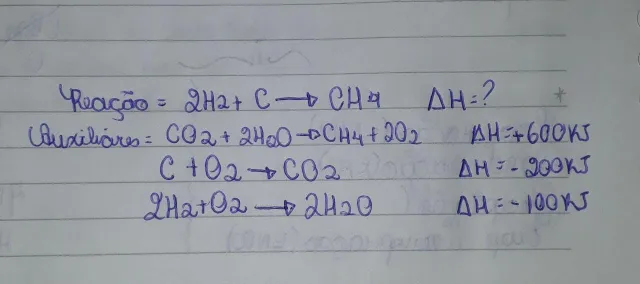 Reação = 2H2 + C → CH4 ΔH = ?
Auxiliáres = CO2 + 2H2O → CH4 + 2O2 ΔH = +600KJ
C + O2 → CO2 ΔH = -200KJ
2H2 + O2 → 2H2O ΔH = -100KJ